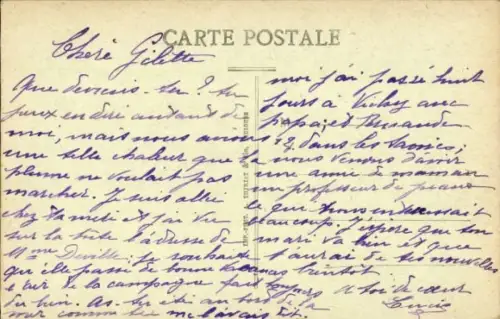 CARTE POSTALE
Cheré Gilette
Que deviens-tu? tu
peux en dire autant de
moi, mais nous avions
une telle chaleur que la
plume ne voulait pas
marcher. Je suis allé
chez ta et j'ai vu
sur la l'adresse de
Mme Deville; je souhaite
qu'elle passe de bonne
l'air de la campagne fait toujours
du bien. As-tu été au bord de la
mer comme tu me l'avais dit.
moi j'ai passé huit
jours à Vichy avec
papa; et
dans les
nous venons d'avoir
une amie de maman
un professeur de piano
ce que nous
beaucoup. J'espère que ton
mari va bien et que
j'aurai de tes nouvelles
bientôt.
à toi de cœur